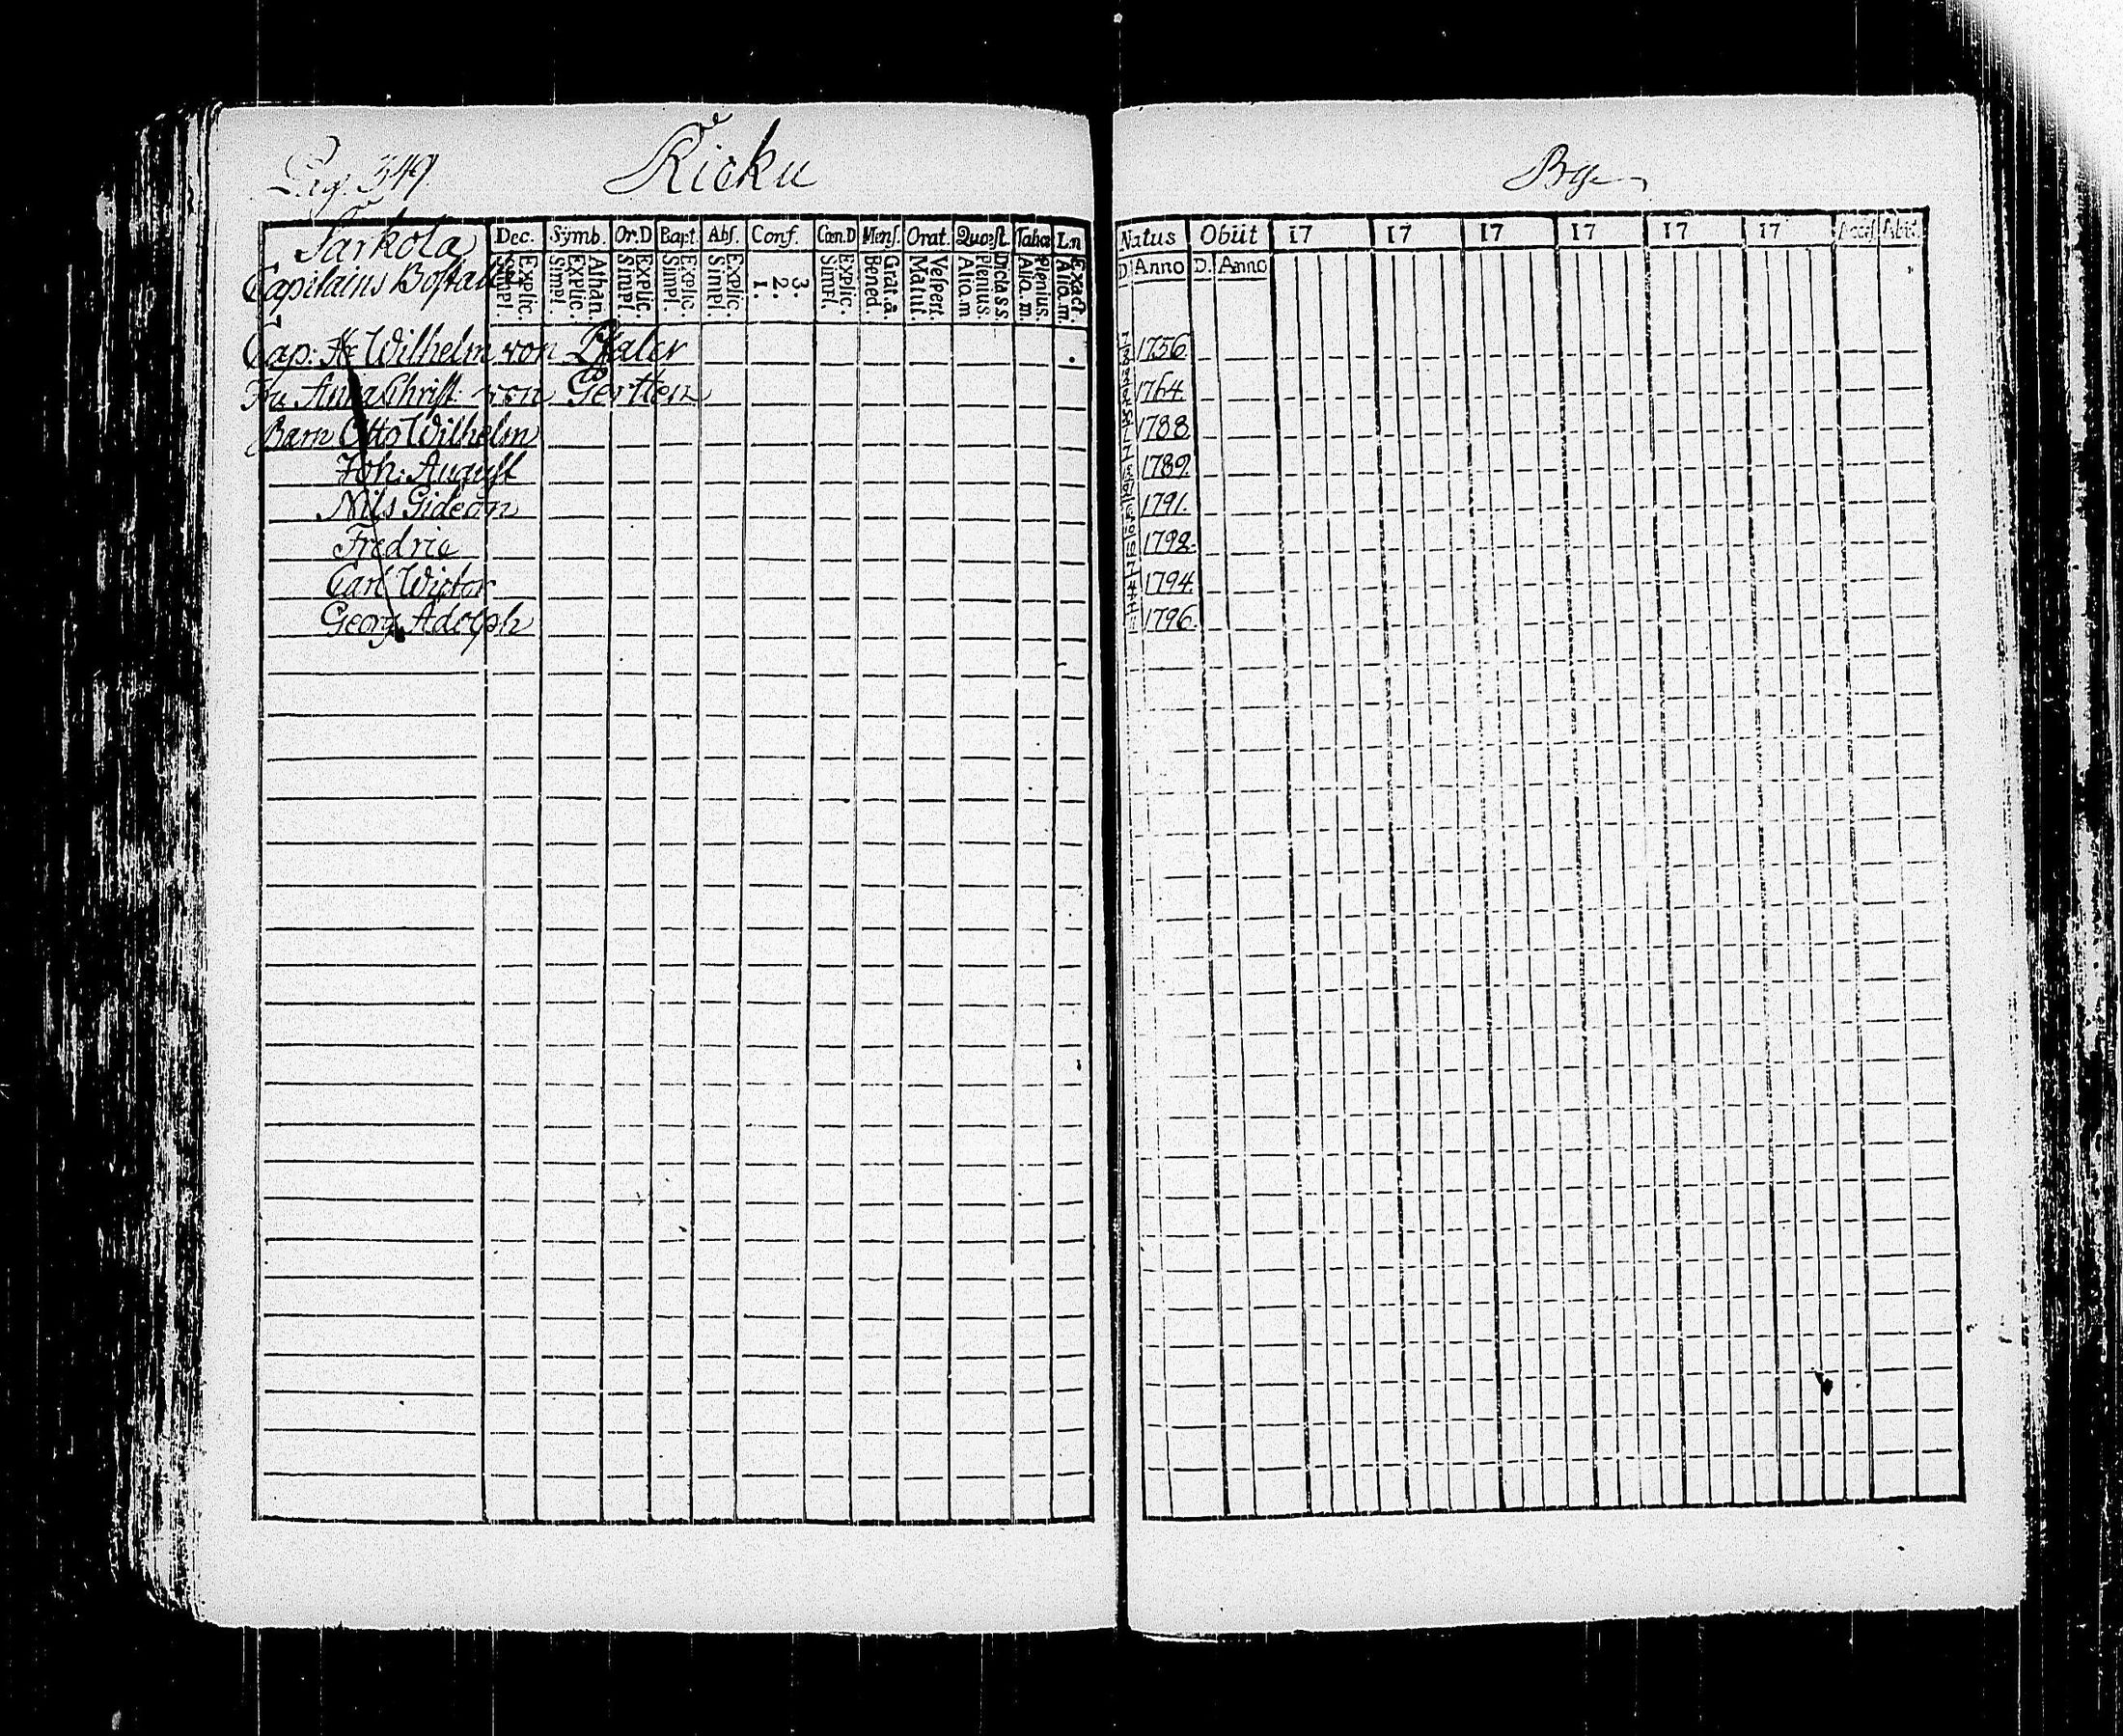 Pag. 349.
Kicku
Bye
Sarkola
Capitains Bostalle
Dec. Symb. Or.D Bapt. Abs. Conf. Cœn.D Mens. Orat. Quæst. Tabæ L.n
Simpl. Explic. Simpl. Explic. Athan. Simpl. Explic. Simpl. Explic. Simpl. Explic. 1. 2. 3. Simpl. Explic. Bened. Grat. a. Matut. Vespert. Alio.m Plenius Dicta s.s. Alio.m. Plenius. Alio.m. Exact.
Natus Obiit 17 17 17 17 17 17 Access Abiit
D. Anno D. Anno
Cap: Wilhelm von Pfaler 1756.
Fru Anna Christ: von Gertten 1764.
Barn Otto Wilhelm 1788.
Joh: August 1789.
Nils Gideon 1791.
Fredric 1792.
Carl Wictor 1794.
Georg Adolph 1796.